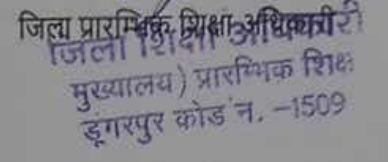 जिला प्रारम्भिक शिक्षा अधिकारी
जिला शिक्षा अधिकारी
मुख्यालय) प्रारम्भिक शिक्षा
डूंगरपुर कोड नं. -1509